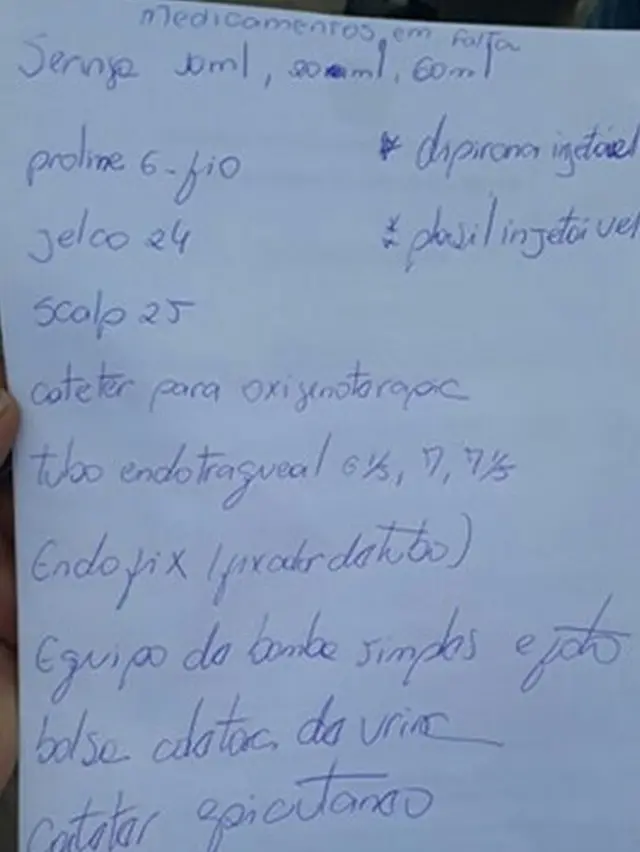 medicamentos em falta
Seringa 10ml, 20ml, 60ml
proline 6-fio
* dipirona injetável
jelco 24
* plasil injetável
scalp 25
cateter para oxigenoterapia
tubo endotraqueal 6 1/5, 7, 7 1/5
Endofix (fixador da tubo)
Equipo de bomba simples e foto
bolsa coletora de urina
cateter epicutaneo